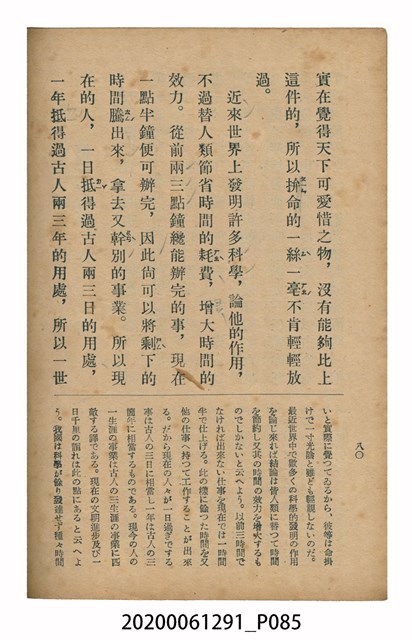 實在覺得天下可愛惜之物，沒有能夠比上
這件的，所以拚命的一絲一毫不肯輕輕放
過。
近來世界上發明許多科學，論他的作用，
不過替人類節省時間的耗費，增大時間的
效力。從前兩三點鐘纔能辦完的事，現在
一點半鐘便可辦完，因此尙可以將剩下的
時間騰出來，拿去又幹別的事業。所以現
在的人，一日抵得過古人兩三日的用處，
一年抵得過古人兩三年的用處，所以一世
八〇
いと實際に覺つてゐるから、彼等は命掛
けで一寸光陰と雖ども輕視しないのだ。
最近世界中で數多くの科學的發明の作用
を論じ來れば結論は皆人類に替つて時間
を節約し又其の時間の效力を增大するも
のでしかないと云へよう。以前三時間で
なければ出來ない仕事を現在では一時間
半で仕上げる。此の樣に餘つた時間を又
他の仕事へ持つて工作することが出來
る。だから現在の人々が一日過ぎでする
事は古人の三日に相當し一年は古人の三
幾年に相當するものである。現今の人の
一生涯の事業は古人の三生涯の事業に匹
敵する譯である。現在の文明進步及び一
日千里の謂れは此の點にあると云へよ
う。我國は科學が餘り發達せず種々時間
20200061291_P085